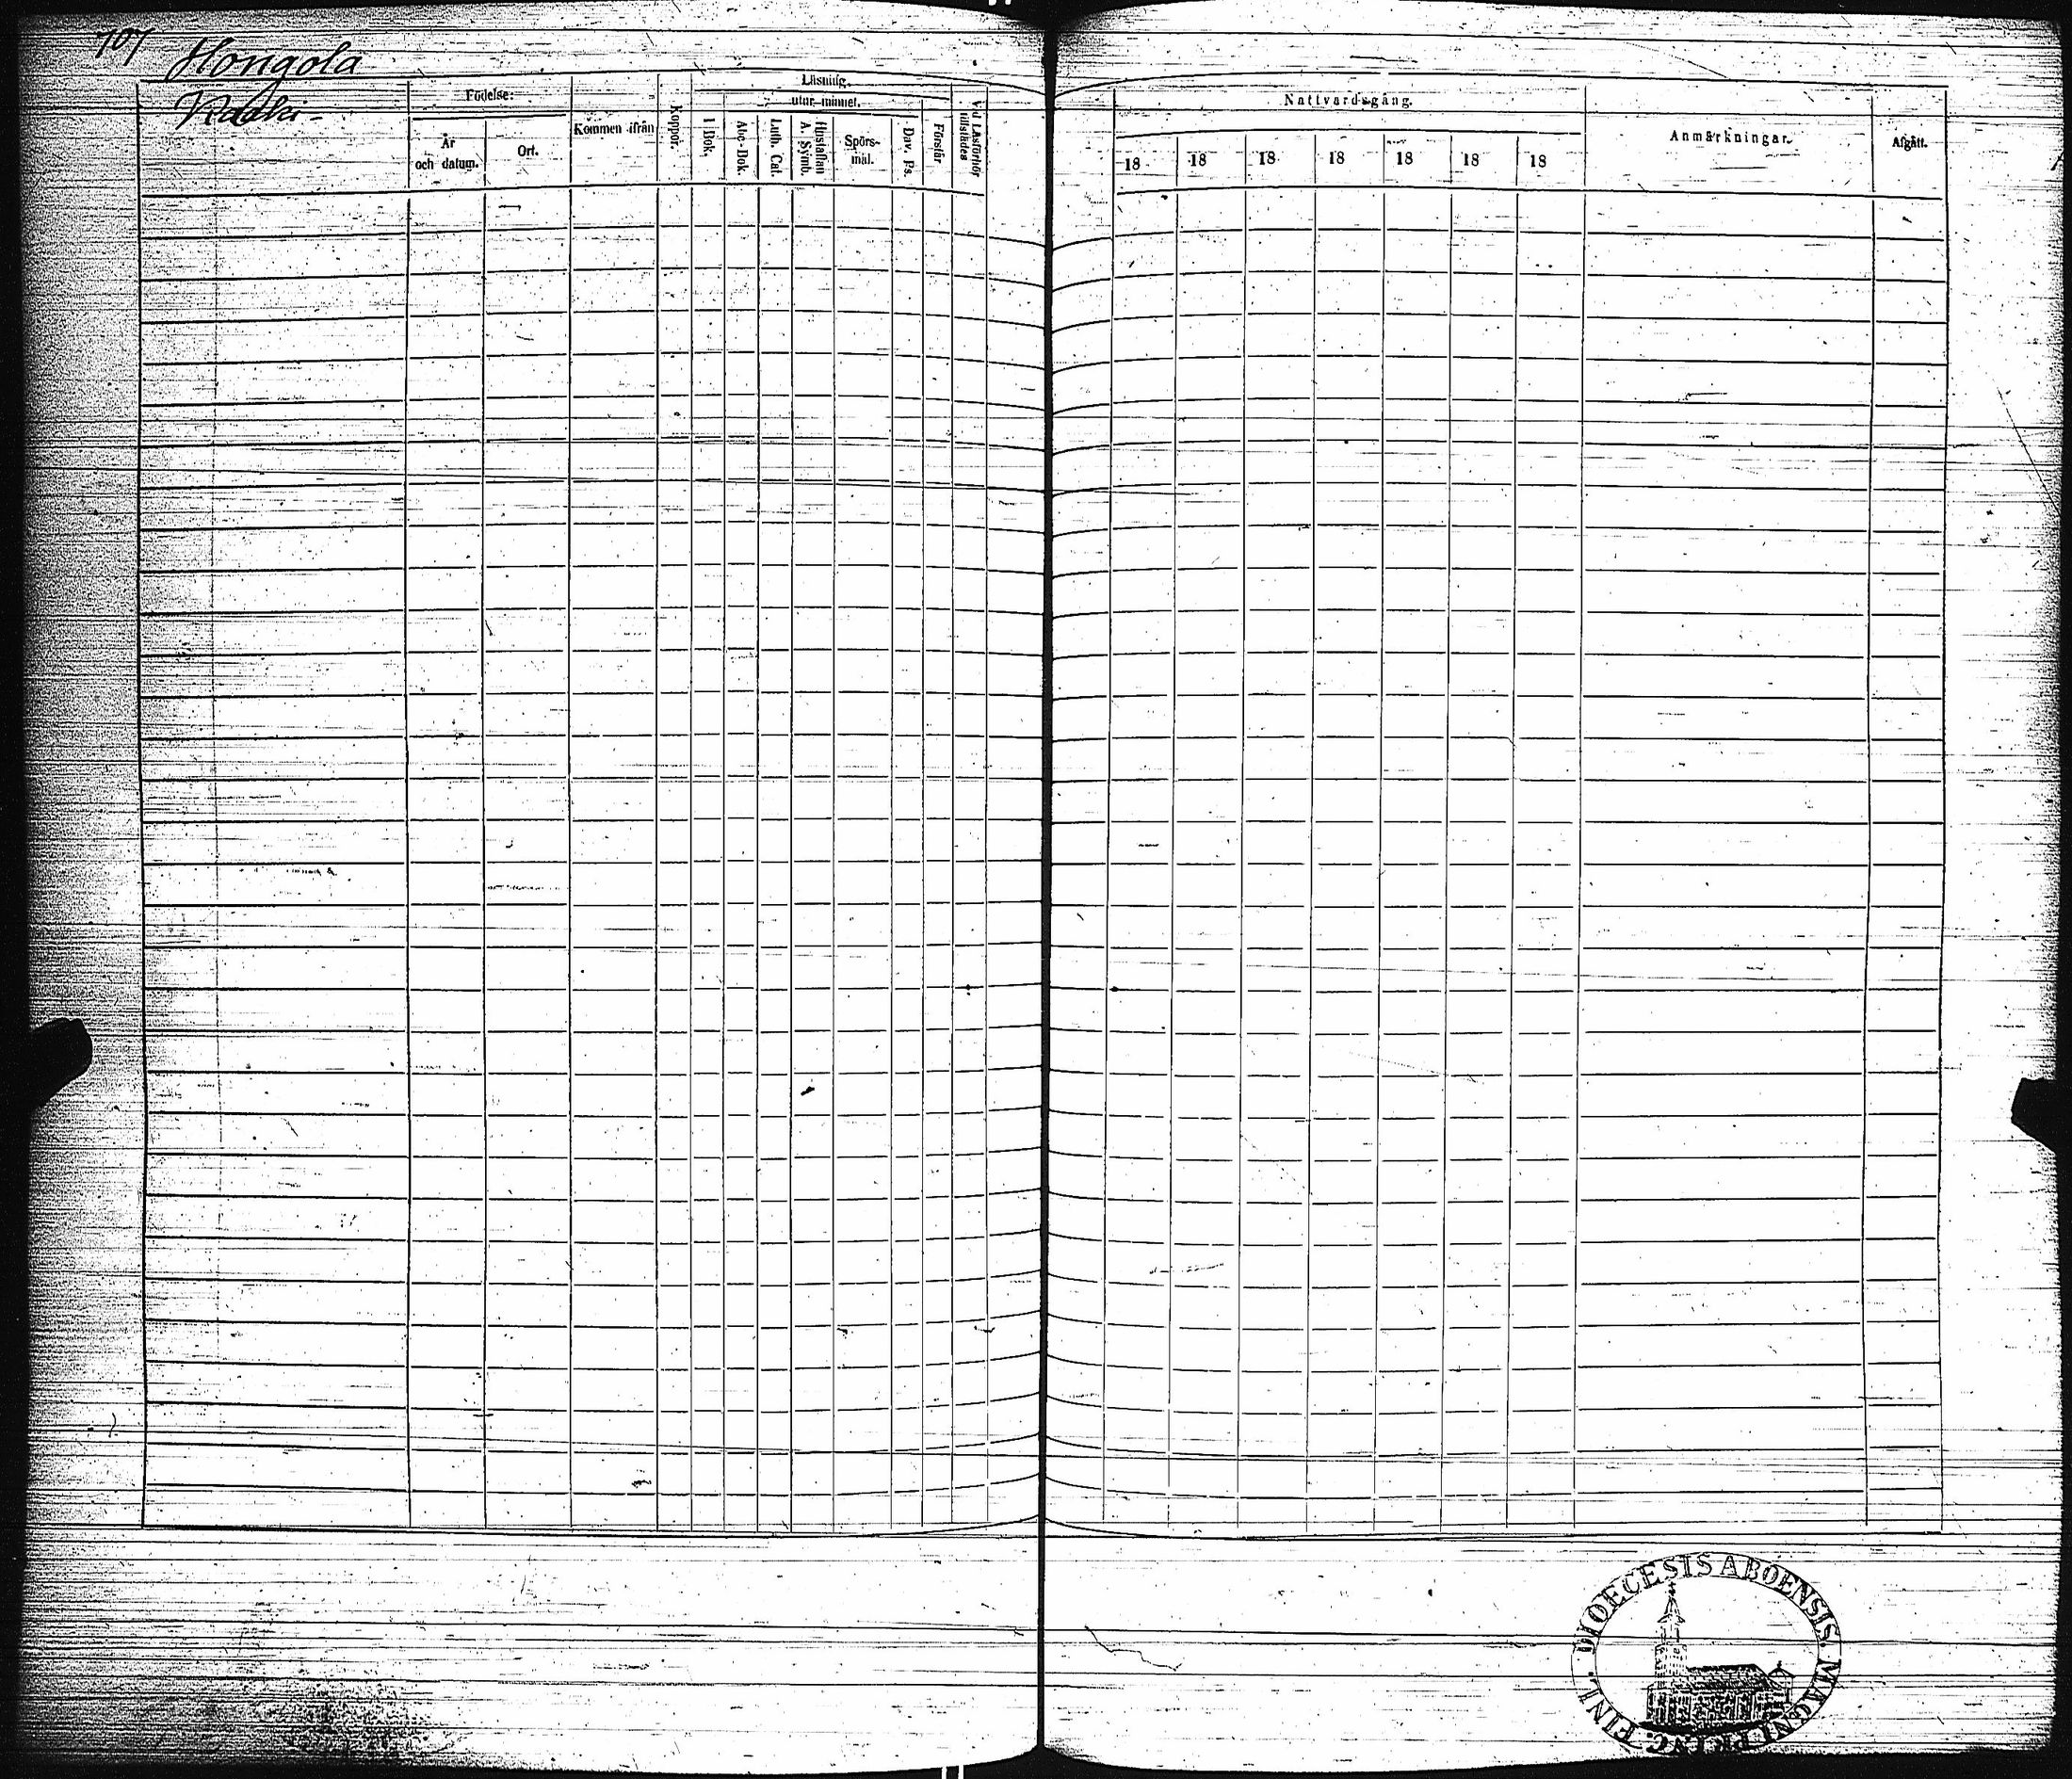 707
Hongola
Födelse.
År
och datum.
Ort.
Kommen ifrån
Koppor.
Läsning.
utur minnet.
I Bok.
Abc-Bok.
Luth. Cat.
Hustaflan
A. Symb.
Spörs-
mål.
Dav. Ps.
Förstår
Vid Läsförhör
tillstädes
Nattvardsgång.
18 18 18 18 18 18 18
Anmärkningar.
Afgått.
DIOECESIS ABOENSIS. MAGNI PRINC. FINL.